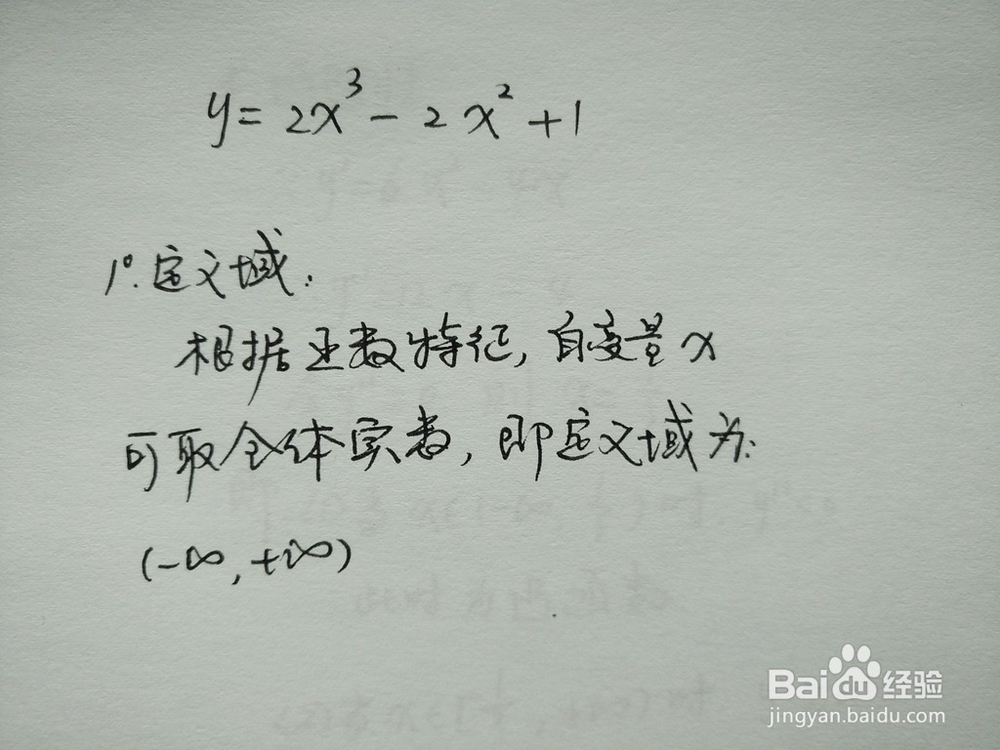 y=2x³-2x²+1
1°.定义域:
根据函数特征,自变量x
可取全体实数,即定义域为:
(-∞,+∞)
Baidu经验
jingyan.baidu.com